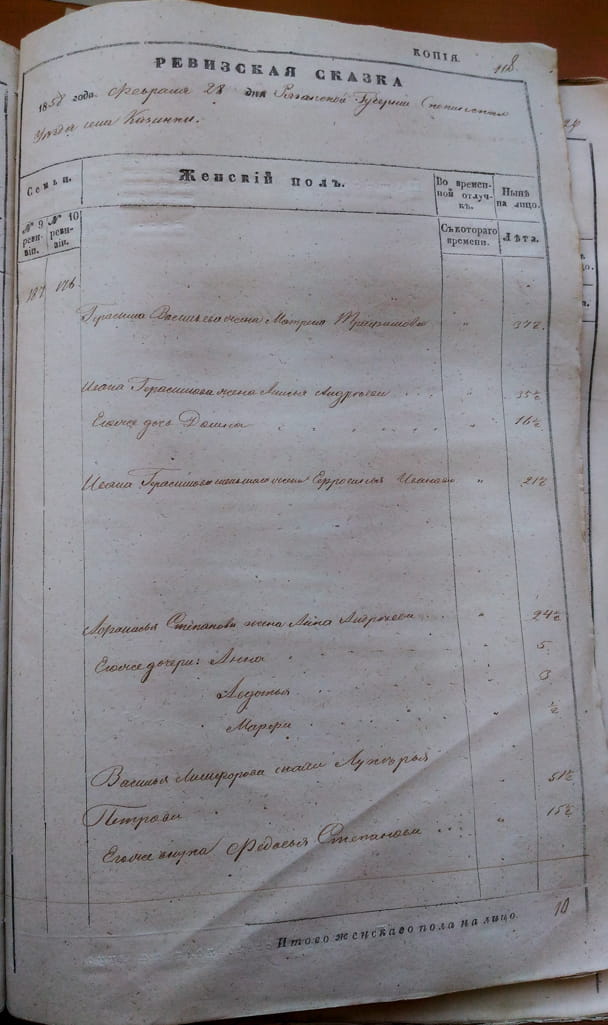 КОПІЯ.
118.
РЕВИЗСКАЯ СКАЗКА
1858 года. Февраля 28 дня Рязанской Губерніи
Уезда села Казинки.
Семьи.
Женскій полъ.
Во времен-
ной отлуч-
къ.
Нынѣ
на лицо.
№ 9
реви-
зіи.
№ 10
реви-
зіи.
Съ котораго
времени.
Лѣта.
187 176.
Герасима Васильева жена Матрена Трифонова " 37½.
Ивана Герасимова жена Анисья Андреева . . . " 35½
Его же дочь Домна " 16½
Ивана Герасимова жена Ефросинья Иванова " 21½
Афанасья Степанова жена Анна Андреева . . " 24½
Его же дочери: Анна . . 5.
Авдотья . . 3
Марфа . . ½
Василья Никифорова Лукерья
Петрова . " 51½
Его же внука Федосья Степанова . . . " 15½
Итого женскаго пола на лицо. 10